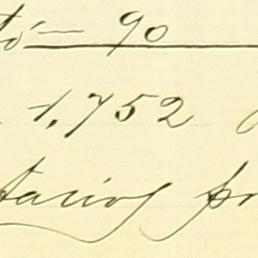 tó — 90
1,752
tarios pr